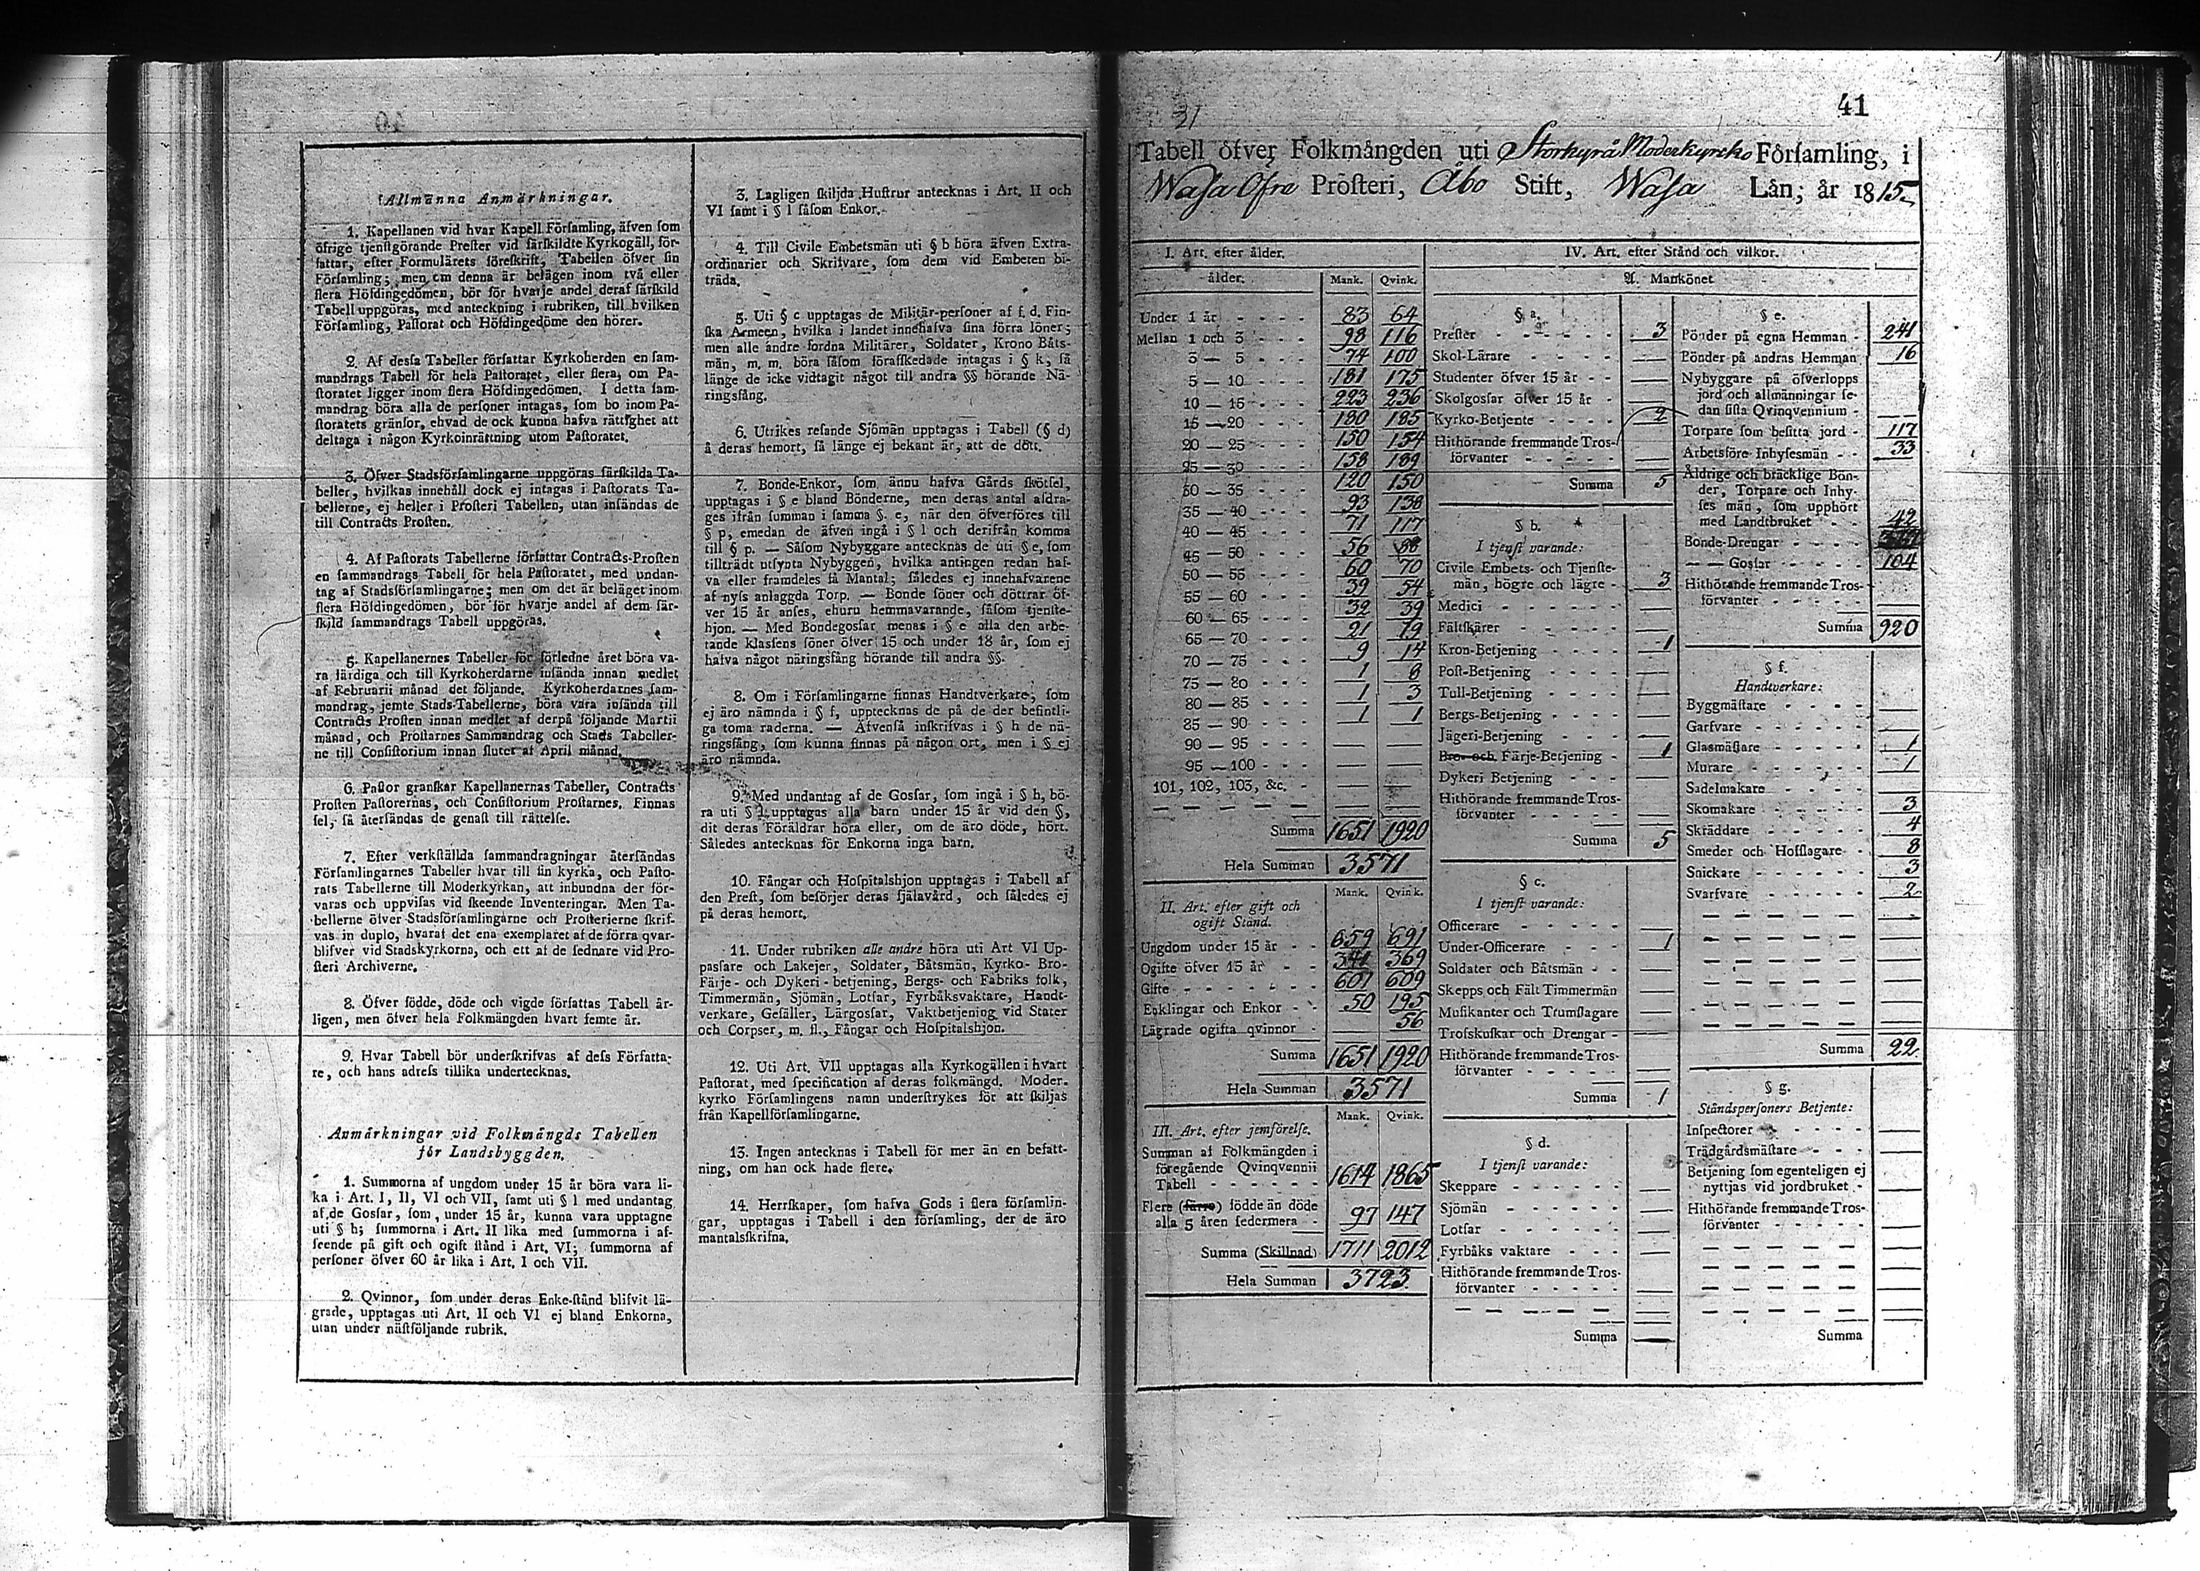 Allmänna Anmärkningar.
1. Kapellanen vid hvar Kapell Församling, äfven som
öfrige tjenstgörande Prester vid särskildte Kyrkogäll, för-
fattar, efter Formulärets föreskrift, Tabellen öfver sin
Församling; men om denna är belägen inom två eller
flera Höfdingedömen, bör för hvarje andel deraf särskild
Tabell uppgöras, med anteckning i rubriken, till hvilken
Församling, Pastorat och Höfdingedöme den hörer.
2. Af dessa Tabeller författar Kyrkoherden en sam-
mandrags Tabell för hela Pastoratet, eller flera, om Pa-
storatet ligger inom flera Höfdingedömen. I detta sam-
mandrag böra alla de personer intagas, som bo inom Pa-
storatets gränsor, ehvad de ock kunna hafva rättighet att
deltaga i någon Kyrkoinrättning utom Pastoratet.
3. Öfver Stadsförsamlingarne uppgöras särskilda Ta-
beller, hvilkas innehåll dock ej intagas i Pastorats Ta-
bellerne, ej heller i Prosteri Tabellen, utan insändas de
till Contracts Prosten.
4. Af Pastorats Tabellerne författar Contracts-Prosten
en sammandrags Tabell för hela Pastoratet, med undan-
tag af Stadsförsamlingarne; men om det är beläget inom
flera Höfdingedömen, bör för hvarje andel af dem sär-
skild sammandrags Tabell uppgöras.
5. Kapellanernes Tabeller för förledne året böra va-
ra färdiga och till Kyrkoherdarne insända innan medlet
af Februarii månad det följande. Kyrkoherdarnes sam-
mandrag, jemte Stads-Tabellerne, böra vara insända till
Contracts Prosten innan medlet af derpå följande Martii
månad, och Prostarnes Sammandrag och Stads Tabeller-
ne till Consistorium innan slutet af April månad.
6. Pastor granskar Kapellanernas Tabeller, Contracts
Prosten Pastorernas, och Consistorium Prostarnes. Finnas
fel, så återsändas de genast till rättelse.
7. Efter verkställda sammandragningar återsändas
Församlingarnes Tabeller hvar till sin kyrka, och Pasto-
rats Tabellerne till Moderkyrkan, att inbundna der för-
varas och uppvisas vid skeende Inventeringar. Men Ta-
bellerne öfver Stadsförsamlingarne och Prosterierne skrif-
vas in duplo, hvaraf det ena exemplaret af de förra qvar-
blifver vid Stadskyrkorna, och ett af de sednare vid Pro-
steri Archiverne.
8. Öfver födde, döde och vigde författas Tabell år-
ligen, men öfver hela Folkmängden hvart femte år.
9. Hvar Tabell bör underskrifvas af dess Författa-
re, och hans adress tillika undertecknas.
Anmärkningar vid Folkmängds Tabellen
för Landsbyggden.
1. Summorna af ungdom under 15 år böra vara li-
ka i Art. I, II, VI och VII, samt uti § l med undantag
af de Gossar, som, under 15 år, kunna vara upptagne
uti § h; summorna i Art. II lika med summorna i af-
seende på gift och ogift stånd i Art. VI; summorna af
personer öfver 60 år lika i Art. I och VII.
2. Qvinnor, som under deras Enke-stånd blifvit lä-
grade, upptagas uti Art. II och VI ej bland Enkorna,
utan under nästföljande rubrik.
3. Lagligen skiljda Hustrur antecknas i Art. II och
VI samt i § l såsom Enkor.
4. Till Civile Embetsmän uti § b höra äfven Extra-
ordinarier och Skrifvare, som dem vid Embeten bi-
träda.
5. Uti § c upptagas de Militär-personer af f. d. Fin-
ska Armeen, hvilka i landet innehafva sina förra löner;
men alle andre fordna Militärer, Soldater, Krono Båts-
män, m. m. böra såsom förafskedade intagas i § k, så
länge de icke vidtagit något till andra §§ hörande Nä-
ringsfång.
6. Utrikes resande Sjömän upptagas i Tabell (§ d)
å deras hemort, så länge ej bekant är, att de dött.
7. Bonde-Enkor, som ännu hafva Gårds skötsel,
upptagas i § e bland Bönderne, men deras antal afdra-
ges ifrån summan i samma §. e, när den öfverföres till
§ p, emedan de äfven ingå i § l och derifrån komma
till § p. — Såsom Nybyggare antecknas de uti § e, som
tillträdt utsynta Nybyggen, hvilka antingen redan haf-
va eller framdeles få Mantal; således ej innehafvarene
af nyss anlaggda Torp. — Bonde söner och döttrar öf-
ver 15 år anses, ehuru hemmavarande, såsom tjenste-
hjon. — Med Bondegossar menas i § e alla den arbe-
tande klassens söner öfver 15 och under 18 år, som ej
hafva något näringsfång hörande till andra §§.
8. Om i Församlingarne finnas Handtverkare, som
ej äro nämnda i § f, upptecknas de på de der befintli-
ga toma raderna. — Äfvenså inskrifvas i § h de nä-
ringsfång, som kunna finnas på någon ort, men i § ej
äro nämnda.
9. Med undantag af de Gossar, som ingå i § h, bö-
ra uti § l upptagas alla barn under 15 år vid den §,
dit deras Föräldrar höra eller, om de äro döde, hört.
Således antecknas för Enkorna inga barn.
10. Fångar och Hospitalshjon upptagas i Tabell af
den Prest, som besörjer deras själavård, och således ej
på deras hemort.
11. Under rubriken alle andre höra uti Art VI Up-
passare och Lakejer, Soldater, Båtsmän, Kyrko- Bro-
Färje- och Dykeri-betjening, Bergs- och Fabriks folk,
Timmermän, Sjömän, Lotsar, Fyrbåksvaktare, Handt-
verkare, Gesäller, Lärgossar, Vaktbetjening vid Stater
och Corpser, m. fl., Fångar och Hospitalshjon.
12. Uti Art. VII upptagas alla Kyrkogällen i hvart
Pastorat, med specification af deras folkmängd. Moder-
kyrko Församlingens namn understrykes för att skiljas
från Kapellförsamlingarne.
13. Ingen antecknas i Tabell för mer än en befatt-
ning, om han ock hade flere.
14. Herrskaper, som hafva Gods i flera församlin-
gar, upptagas i Tabell i den församling, der de äro
mantalsskrifna.
41
21
Tabell öfver Folkmängden uti Storkyrå Moderkyrko Församling, i
Wasa Öfre Prosteri, Åbo Stift, Wasa Län, år 1815.
I. Art. efter ålder.
ålder. Mank. Qvink.
Under 1 år 83 64
Mellan 1 och 3 98 116
3 — 5 74 100
5 — 10 181 175
10 — 15 223 236
15 — 20 180 185
20 — 25 150 154
25 — 30 158 189
30 — 35 120 150
35 — 40 93 138
40 — 45 71 117
45 — 50 56 88
50 — 55 60 70
55 — 60 39 54
60 — 65 32 39
65 — 70 21 19
70 — 75 9 14
75 — 80 1 8
80 — 85 1 3
85 — 90 1 1
90 — 95 — —
95 — 100 — —
101, 102, 103, &c. — —
Summa 1651 1920
Hela Summan 3571
II. Art. efter gift och
ogift Stånd.
Mank. Qvink.
Ungdom under 15 år 659 691
Ogifte öfver 15 år 341 369
Gifte 601 609
Enklingar och Enkor 50 195
Lägrade ogifta qvinnor 56
Summa 1651 1920
Hela Summan 3571
Mank. Qvink.
III. Art. efter jemförelse.
Summan af Folkmängden i
föregående Qvinqvennii
Tabell 1614 1865
Flere (färre) födde än döde
alla 5 åren sedermera 97 147
Summa (Skillnad) 1711 2012
Hela Summan 3723
IV. Art. efter Stånd och vilkor.
A. Mankönet
§ a.
Prester 3
Skol-Lärare —
Studenter öfver 15 år —
Skolgossar öfver 15 år —
Kyrko-Betjente 2
Hithörande fremmande Tros-
förvanter —
Summa 5
§ b.
I tjenst varande:
Civile Embets- och Tjenste-
män, högre och lägre 3
Medici —
Fältskärer —
Kron-Betjening 1
Post-Betjening —
Tull-Betjening —
Bergs-Betjening —
Jägeri-Betjening —
Bro- och Färje-Betjening 1
Dykeri Betjening —
Hithörande fremmande Tros-
förvanter —
Summa 5
§ c.
I tjenst varande:
Officerare —
Under-Officerare 1
Soldater och Båtsmän —
Skepps och Fält Timmermän —
Musikanter och Trumslagare —
Trosskuskar och Drengar —
Hithörande fremmande Tros-
förvanter —
Summa 1
§ d.
I tjenst varande:
Skeppare —
Sjömän —
Lotsar —
Fyrbåks vaktare —
Hithörande fremmande Tros-
förvanter —
Summa —
§ e.
Bönder på egna Hemman 241
Bönder på andras Hemman 16
Nybyggare på öfverlopps
jord och allmänningar se-
dan sista Qvinqvennium —
Torpare som besitta jord 117
Arbetsföre Inhysesmän 33
Åldrige och bräcklige Bön-
der, Torpare och Inhy-
ses män, som upphört
med Landtbruket 42
Bonde-Drengar
— — Gossar 104
Hithörande fremmande Tros-
förvanter —
Summa 920
§ f.
Handtverkare:
Byggmästare —
Garfvare —
Glasmästare 1
Murare 1
Sadelmakare —
Skomakare 3
Skräddare 4
Smeder och Hofslagare 8
Snickare 3
Svarfvare 2
Summa 22
§ g.
Ståndspersoners Betjente:
Inspectorer —
Trädgårdsmästare —
Betjening som egenteligen ej
nyttjas vid jordbruket —
Hithörande fremmande Tros-
förvanter —
Summa